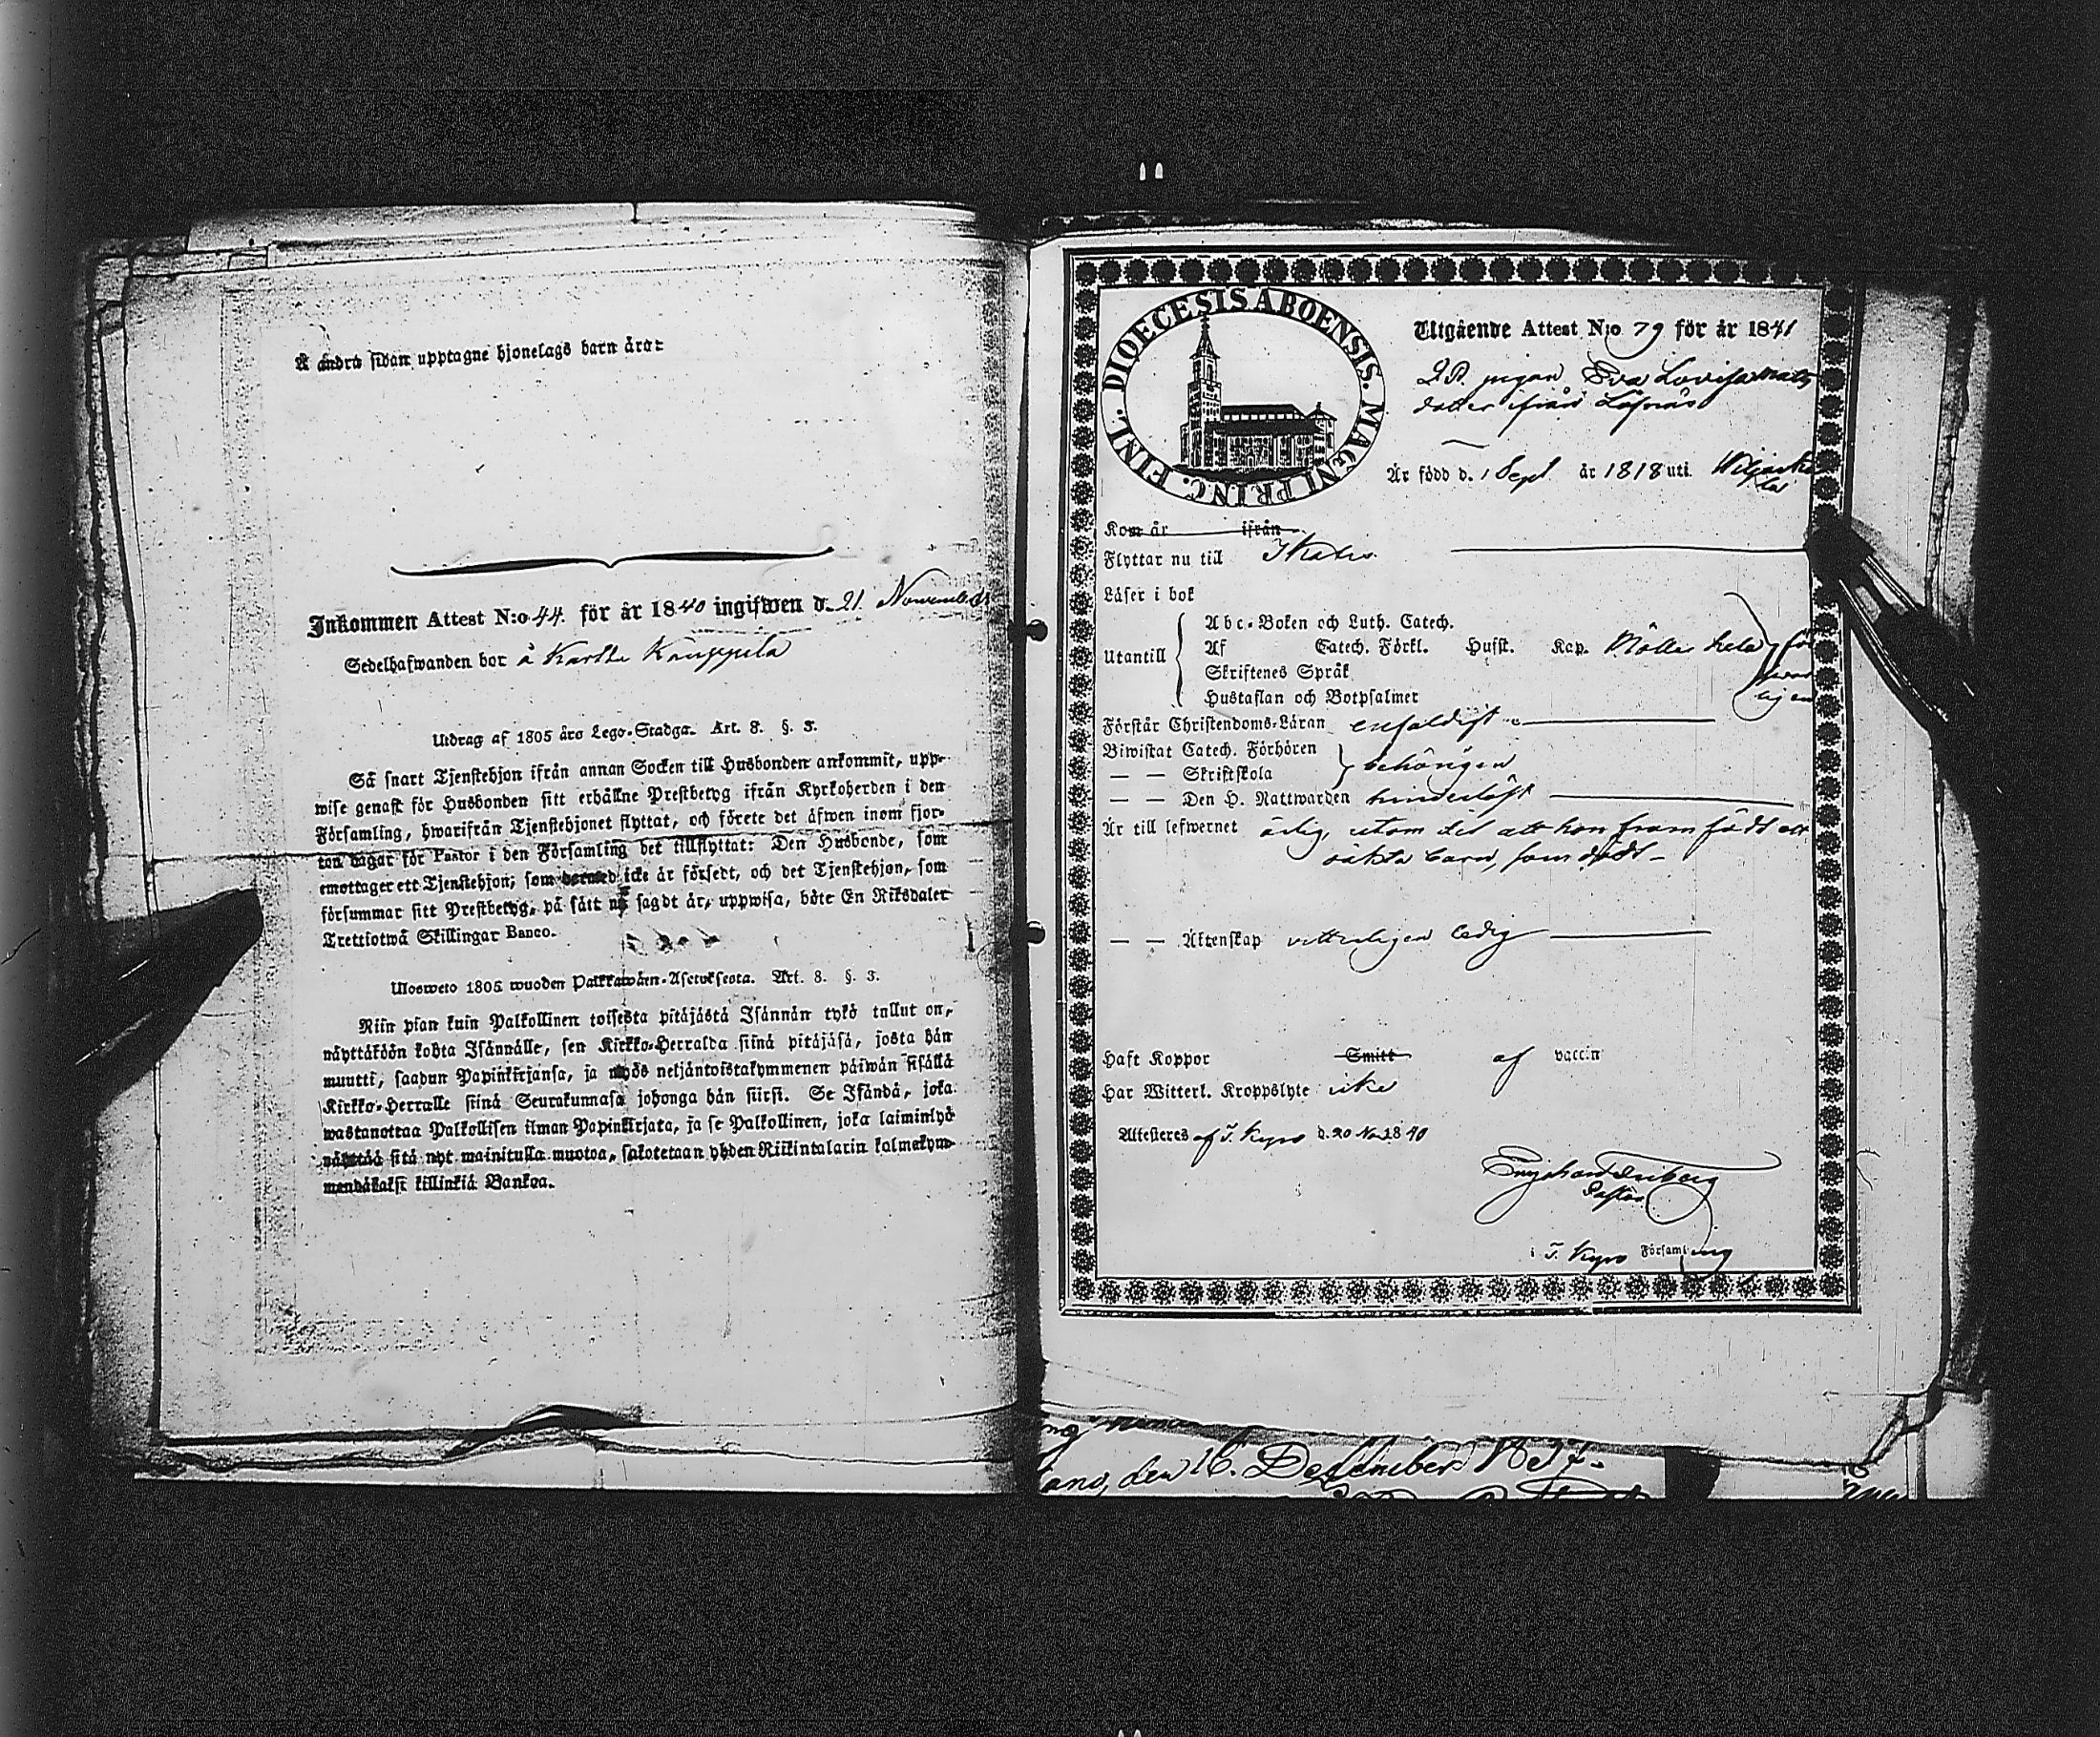 Å andra sidan upptagne hjonelags barn äro:
Inkommen Attest N:o 44. för år 1840 ingifwen d. 21 November
Sedelhafwanden bor å Kartti Kauppila
Utdrag af 1805 års Lego-Stadga. Art. 8. §. 3.
Så snart Tjenstehjon ifrån annan Socken till Husbonden ankommit, upp-
wise genast för Husbonden sitt erhållne Prestbetyg ifrån Kyrkoherden i den
Församling, hwarifrån Tjenstehjonet flyttat, och förete det äfwen inom fjor-
ton dagar för Pastor i den Församling det tillflyttat: Den Husbonde, som
emottager ett Tjenstehjon, som dermed icke är försedt, och det Tjenstehjon, som
försummar sitt Prestbetyg, på sätt nu sagdt är, uppwisa, böte En Riksdaler
Trettiotwå Skillingar Banco.
Ulosweto 1805 wuoden Palkkawäen-Asetuksesta. Art. 8. §. 3.
Niin pian kuin Palkollinen toisesta pitäjästä Isännän tykö tullut on,
näyttäköön kohta Isännälle, sen Kirkko-Herralda siinä pitäjäsä, josta hän
muutti, saadun Papinkirjansa, ja myös neljäntoistakymmenen päiwän sisällä
Kirkko-Herralle siinä Seurakunnasa johonga hän siirsi. Se Isändä, joka
wastanottaa Palkollisen ilman Papinkirjata, ja se Palkollinen, joka laiminlyö
näyttää sitä nyt mainitulla muotoa, sakotetaan yhden Riikintalarin kolmekym-
mendäkaksi killinkiä Bankoa.
DIOECESIS ABOENSIS. MAGNI PRINC. FINL.
Utgående Attest N:o 79 för år 1841
pigan Eva Lovisa Mats
dotter ifrån
Är född d. 1 Sept år 1818 uti
Kom år ifrån
Flyttar nu till Ikalis
Läser i bok
Utantill
Abc-Boken och Luth. Catech.
Af Catech. Förkl. Husst. Kap. Möller hela för
Skriftenes Språk
Hustaflan och Botpsalmer
Förstår Christendoms-Läran enfaldigt
Biwistat Catech. Förhören behörigen
— — Skriftskola
— — Den H. Nattwarden hinderlöst
Är till lefwernet ärlig, utom det att hon framfödt ett
oäkta barn, som dödt
— — Äktenskap vitterligen ledig
Haft Koppor Smitt af vaccin
Har Witterl. Kroppslyte icke
Attesteras af T. Kyro d. 20 Nov 1840
Pastor
i T. Kyro Församling
den 16. December 1837.